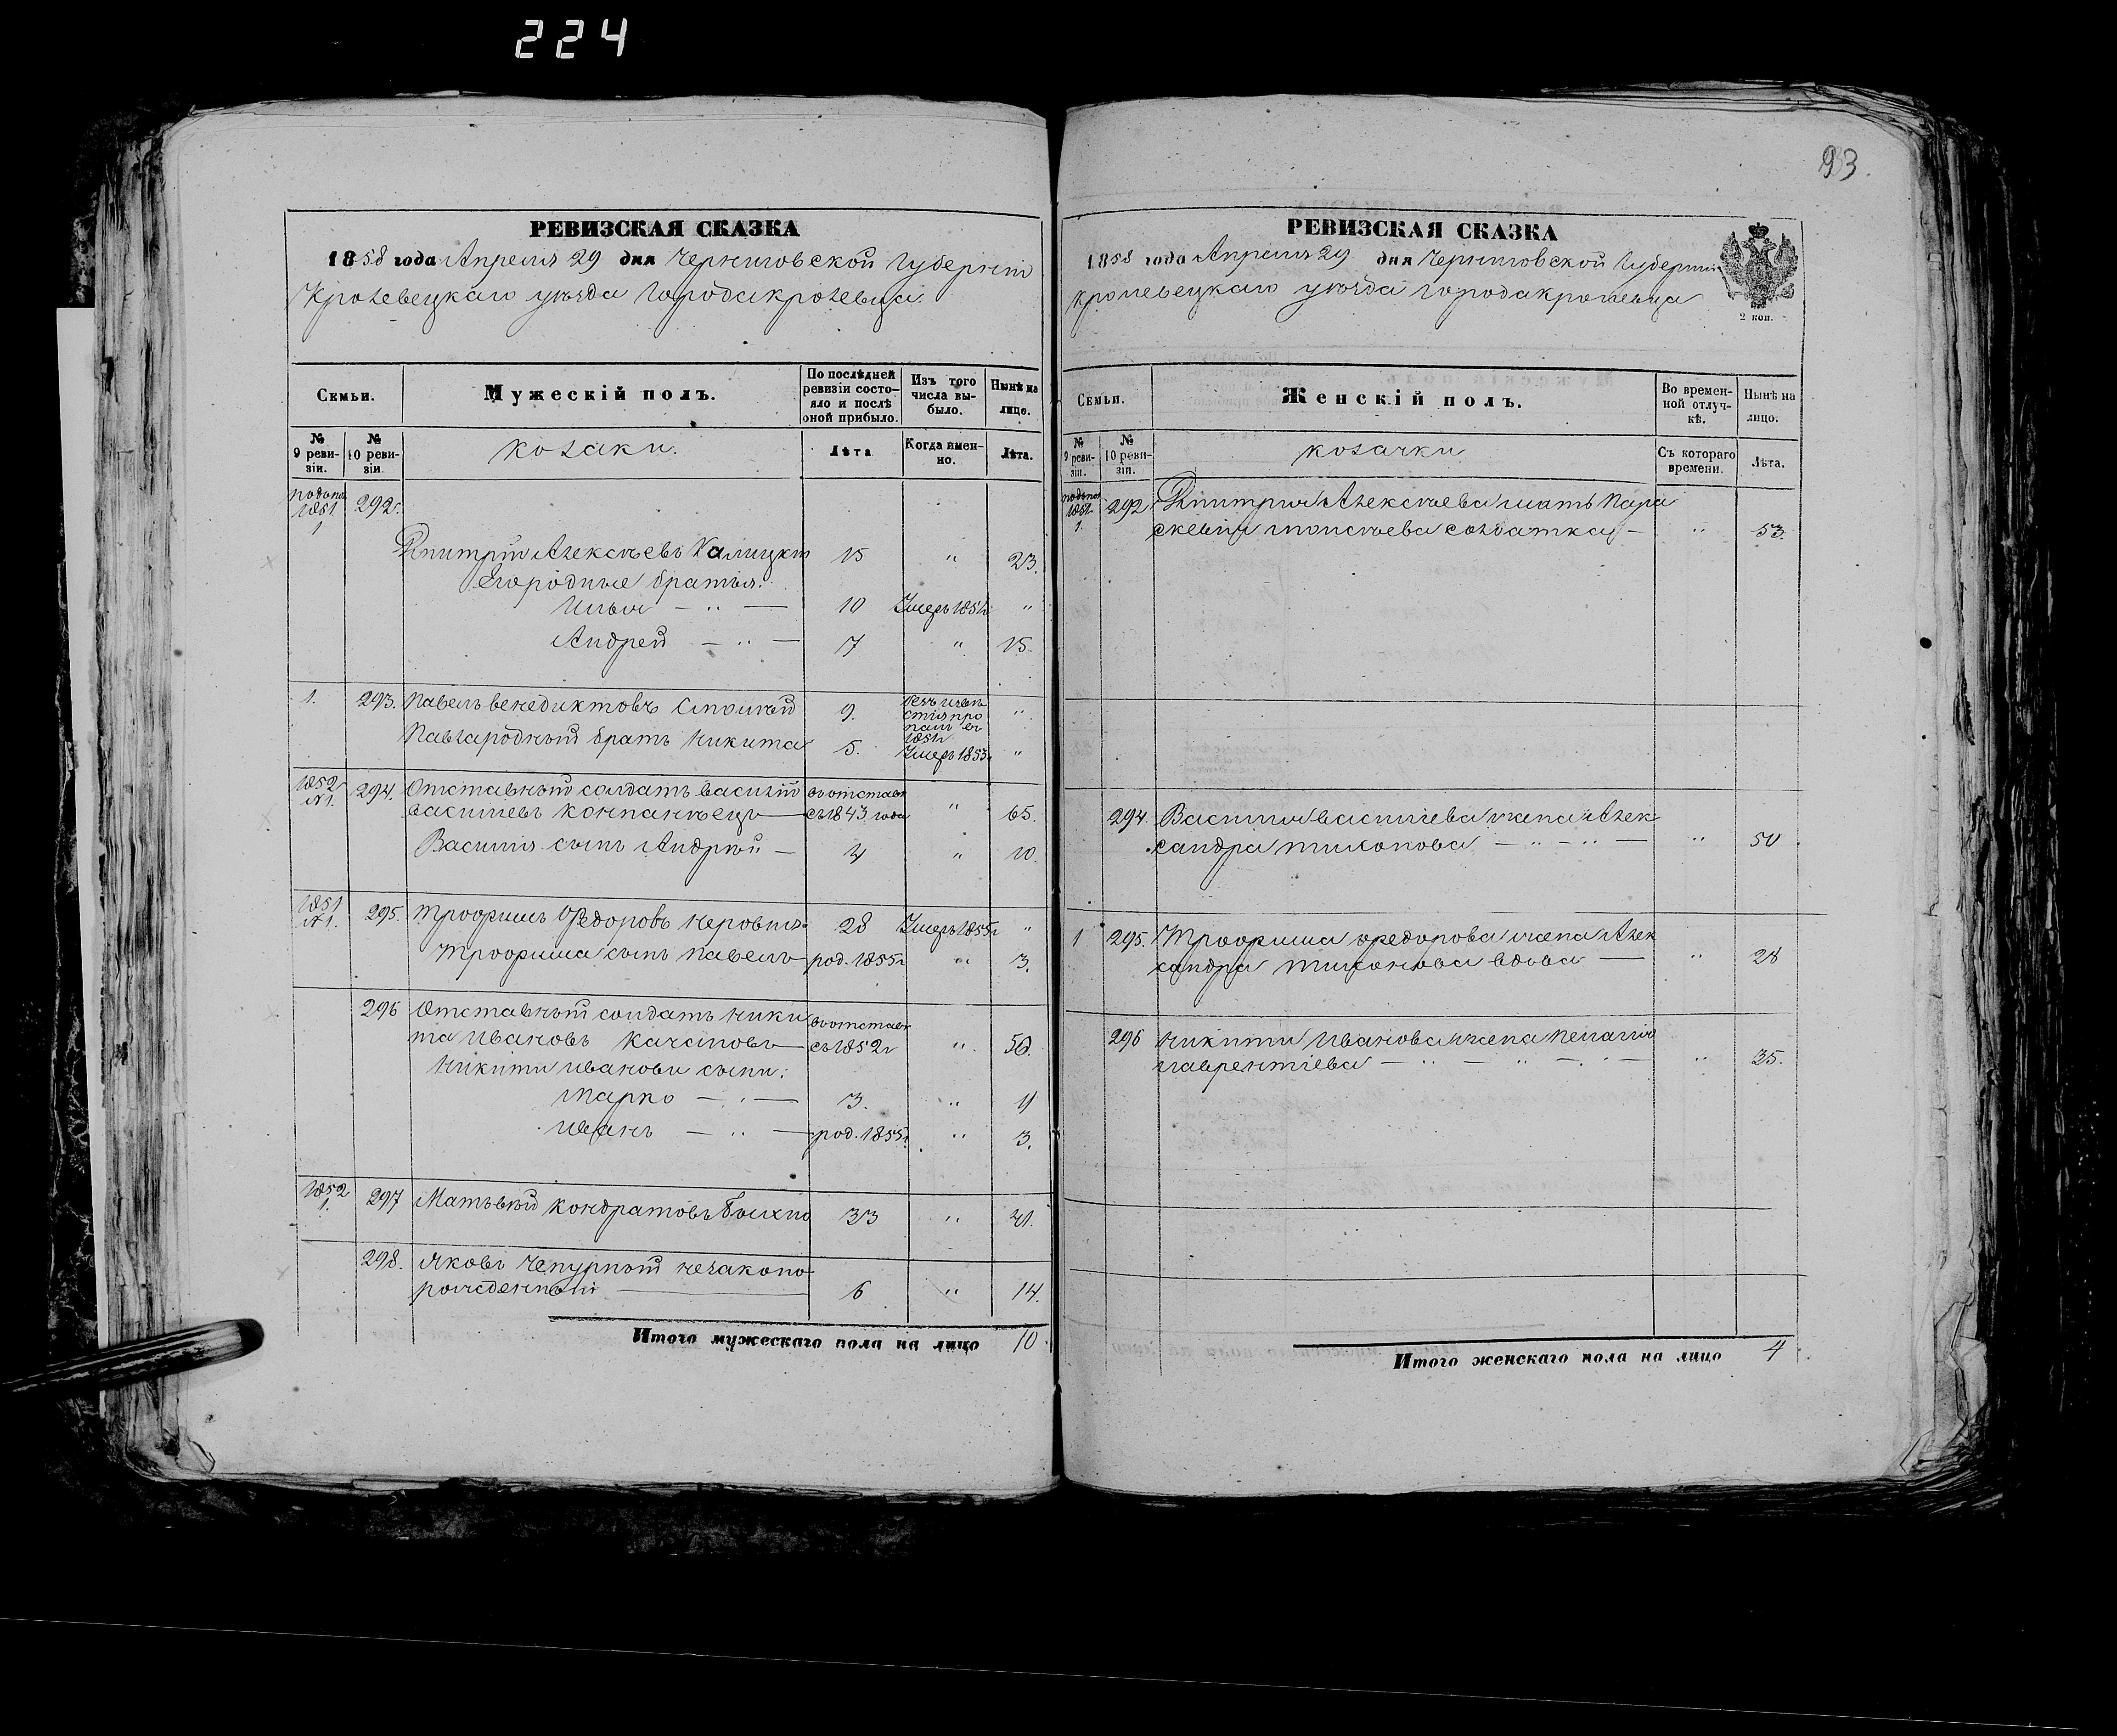 224
93.
РЕВИЗСКАЯ СКАЗКА
1858 года Апреля 29 дня Черниговской Губерніи
Кролевецкаго уѣзда Города кролевца
Семьи.
Мужескій полъ.
По послѣдней ревизіи состояло и послѣ оной прибыло.
Изъ того числа выбыло.
Нынѣ на лице.
№ 9 ревизіи.
№ 10 ревизіи.
козаки.
Лѣта
Когда именно.
Лѣта.
1851
1
292.
Дмитрій Алексѣевъ Калицкій 15 " 23.
Егородные братья:
Илья — " — 10 Умеръ 1851г "
Андрей — " — 7 " 15.
1. 293. Павелъ венедиктовъ 9. безъ извѣстія пропалъ въ 1851г "
Павлародный братъ Никита 5. Умеръ 1853г "
1852 №1. 294. Отставный солдатъ василій въ отставкѣ
василіевъ компанѣецъ — съ 1843 года " 65.
Василія сынъ Андрѣй — 4 " 10.
1851 №1. 295. Трофимъ Федоровъ 28 Умеръ 1855г "
Трофима сынъ Павелъ — род. 1855г " 3.
296 Отставный солдатъ Ники въ отставкѣ
та Ивановъ Качановъ — съ 1852г " 50.
Никиты иванова сыны:
Марко — " — 3. " 11
Иванъ — " — род. 1855г. " 3.
1852 1. 297 Матьвѣй Кондратовъ 33 " 41.
298. Яковъ Чепурный незаконо
рожденный — 6 " 14.
Итого мужескаго пола на лицо 10.
РЕВИЗСКАЯ СКАЗКА
1858 года Апреля 29 дня Черниговской Губерніи
кролевецкаго уѣзда города кролевца
2 коп.
Семьи.
Женскій полъ.
Во временной отлучкѣ.
Нынѣ на лицо.
№ 9 ревизіи.
№ 10 ревизіи.
козачки
Съ котораго времени.
Лѣта.
1851
1.
292 Дмитрія Алексѣева мать Пара
скевія моисѣева солдатка — " 53.
294. Василія василіева жена Алек
сандра тихонова — " — " — " 50
1 295. Трофима федорова жена Алек
сандра тихонова вдова — " 28
296 Никиты Иванова жена Пелагія
лаврентіева — " — " — " — " 35.
Итого женскаго пола на лицо 4